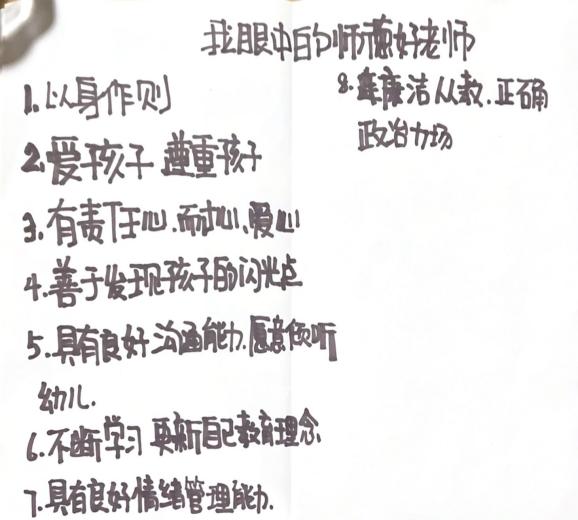 我眼中的师德好老师
1.以身作则
2.爱孩子 尊重孩子
3.有责任心.耐心、爱心
4.善于发现孩子的闪光点
5.具有良好沟通能力.愿意倾听
幼儿.
6.不断学习 更新自己教育理念
7.具有良好情绪管理能力.
8.廉洁从教.正确
政治力场